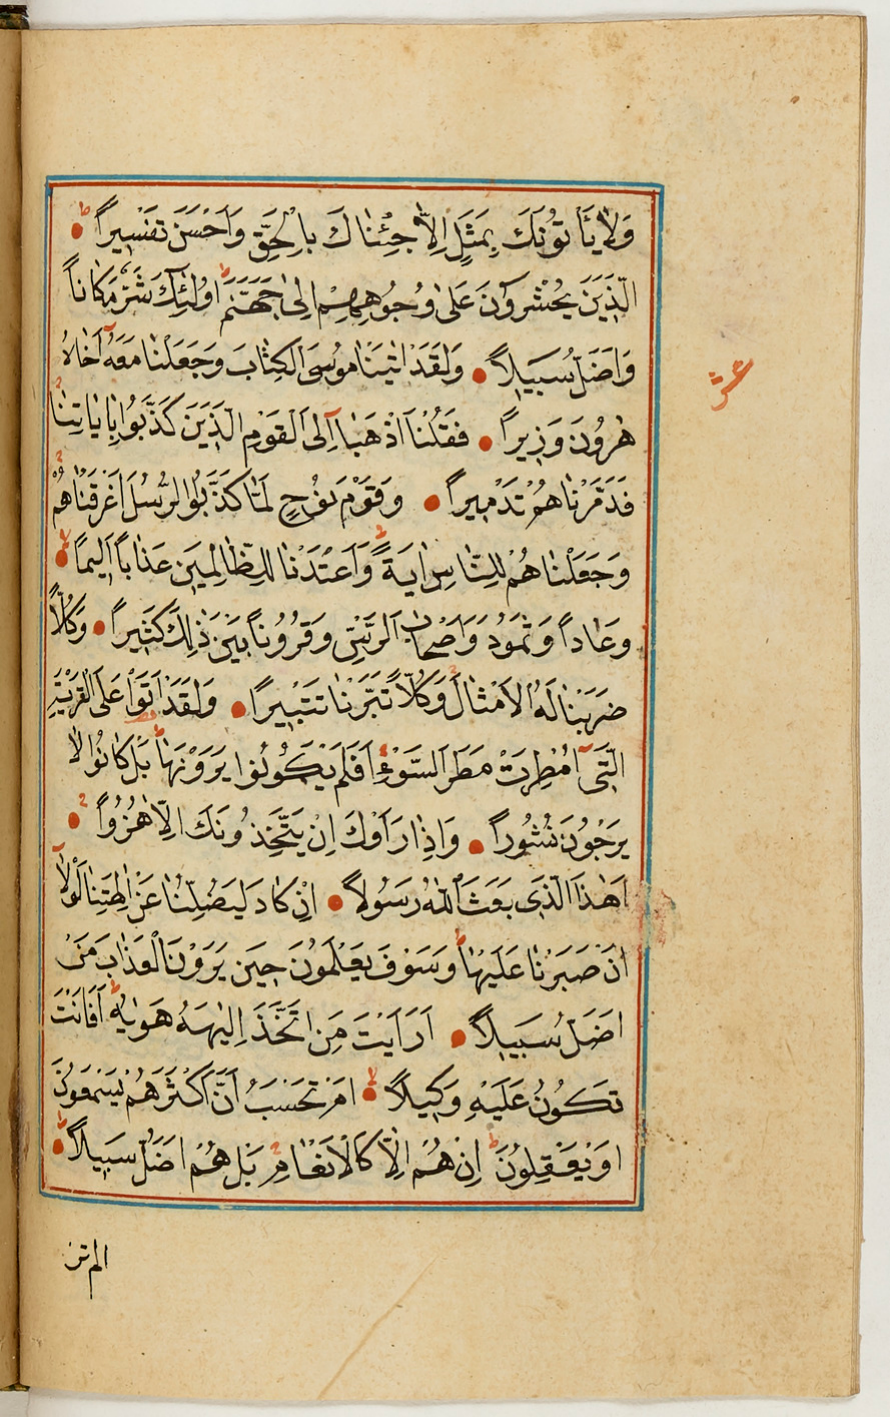 وَلَا يَأْتُونَكَ بِمَثَلٍ اِلَّا جِئْنَاكَ بِالْحَقِّ وَاَحْسَنَ تَفْسِيرًا ط
اَلَّذِينَ يُحْشَرُونَ عَلٰى وُجُوهِهِمْ اِلٰى جَهَنَّمَ ط اُولٰئِكَ شَرٌّ مَكَانًا
وَاَضَلُّ سَبِيلًا وَلَقَدْ اٰتَيْنَا مُوسَى الْكِتَابَ وَجَعَلْنَا مَعَهُ اَخَاهُ
هٰرُونَ وَزِيرًا فَقُلْنَا اذْهَبَا اِلَى الْقَوْمِ الَّذِينَ كَذَّبُوا بِاٰيَاتِنَا
فَدَمَّرْنَاهُمْ تَدْمِيرًا وَقَوْمَ نُوحٍ لَمَّا كَذَّبُوا الرُّسُلَ اَغْرَقْنَاهُمْ
وَجَعَلْنَاهُمْ لِلنَّاسِ اٰيَةً ط وَاَعْتَدْنَا لِلظَّالِمِينَ عَذَابًا اَلِيمًا
وَعَادًا وَثَمُودَ وَاَصْحَابَ الرَّسِّ وَقُرُونًا بَيْنَ ذٰلِكَ كَثِيرًا وَكُلًّا
ضَرَبْنَا لَهُ الْاَمْثَالَ وَكُلًّا تَبَّرْنَا تَتْبِيرًا وَلَقَدْ اَتَوْا عَلَى الْقَرْيَةِ
الَّتِى اُمْطِرَتْ مَطَرَ السَّوْءِ اَفَلَمْ يَكُونُوا يَرَوْنَهَا بَلْ كَانُوا لَا
يَرْجُونَ نُشُورًا وَاِذَا رَاَوْكَ اِنْ يَتَّخِذُونَكَ اِلَّا هُزُوًا
اَهٰذَا الَّذِى بَعَثَ اللّٰهُ رَسُولًا اِنْ كَادَ لَيُضِلُّنَا عَنْ اٰلِهَتِنَا لَوْلَا
اَنْ صَبَرْنَا عَلَيْهَا ط وَسَوْفَ يَعْلَمُونَ حِينَ يَرَوْنَ الْعَذَابَ مَنْ
اَضَلُّ سَبِيلًا اَرَاَيْتَ مَنِ اتَّخَذَ اِلٰهَهُ هَوٰيهُ ط اَفَاَنْتَ
تَكُونُ عَلَيْهِ وَكِيلًا اَمْ تَحْسَبُ اَنَّ اَكْثَرَهُمْ يَسْمَعُونَ
اَوْ يَعْقِلُونَ ط اِنْ هُمْ اِلَّا كَالْاَنْعَامِ بَلْ هُمْ اَضَلُّ سَبِيلًا
عشر
الم تر